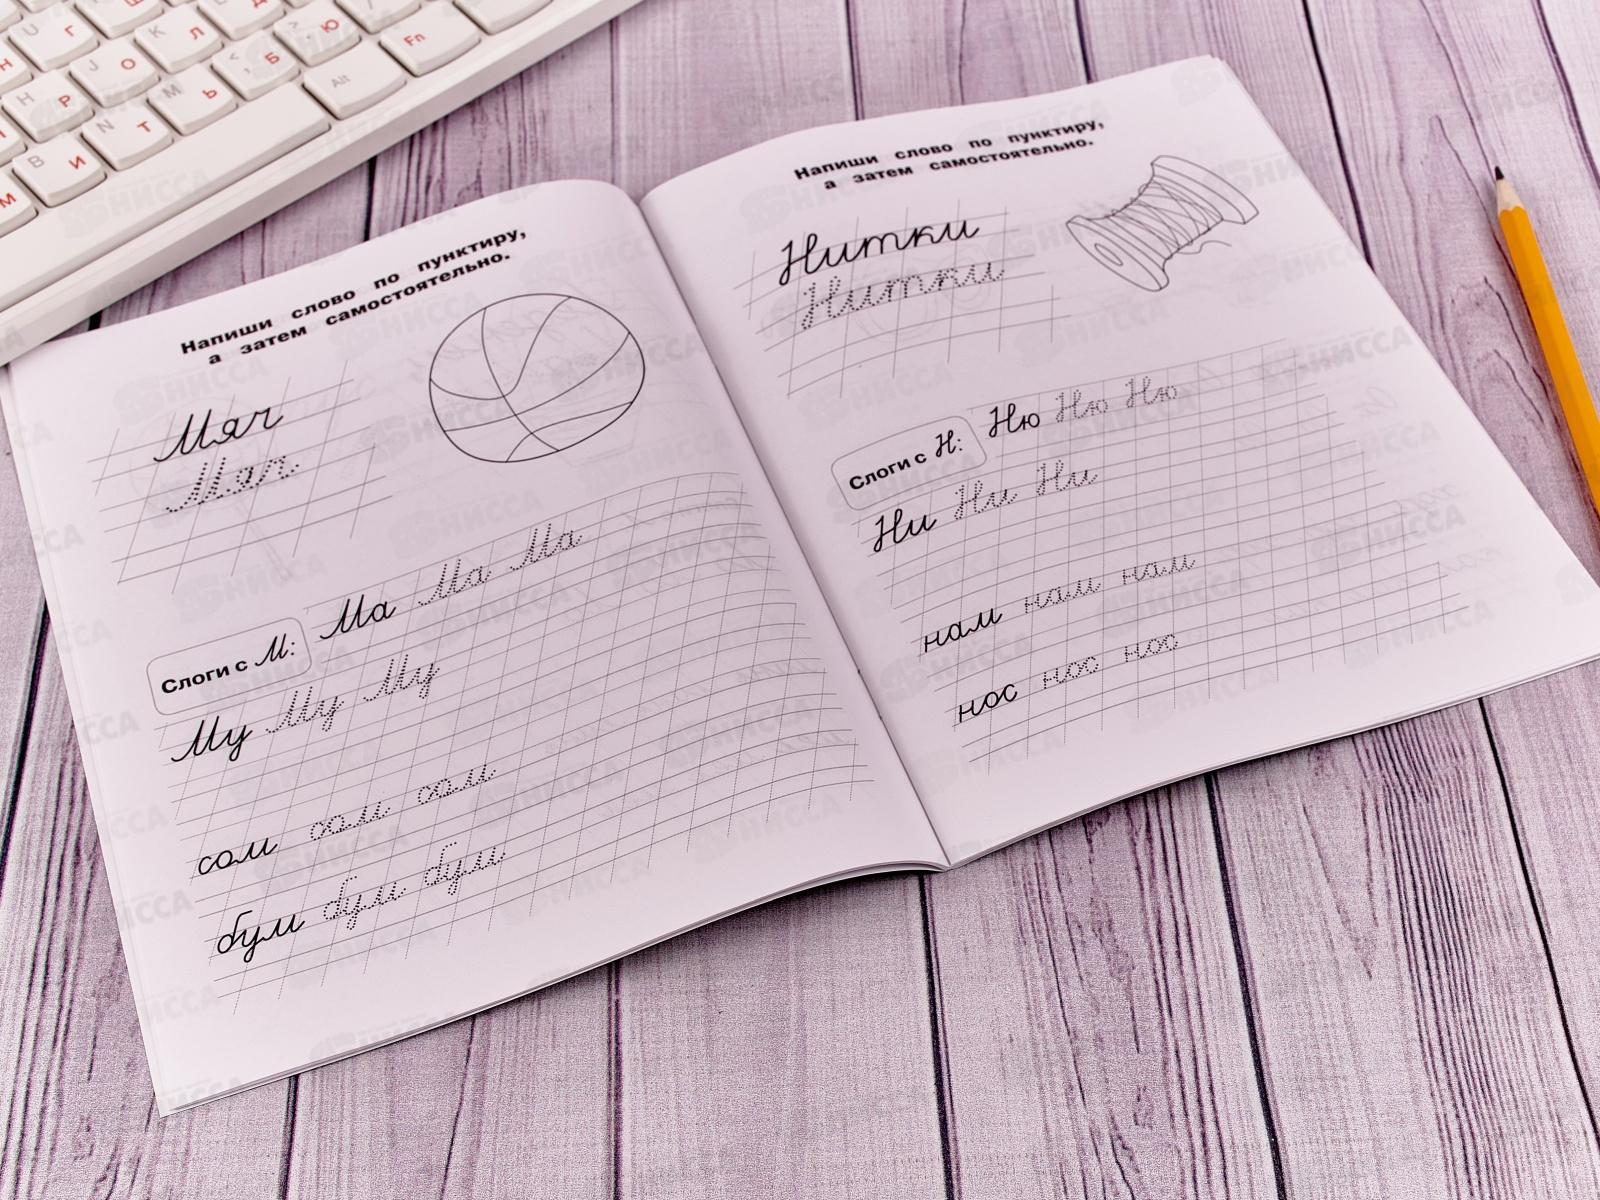 Напиши слово по пунктиру,
а затем самостоятельно.
Мяч
Мяч
Слоги с М: Ма Ма Ма
Му Му Му
сом сом сом
бум бум бум
Напиши слово по пунктиру,
а затем самостоятельно.
Нитки
Нитки
Слоги с Н: Ню Ню Ню
Ни Ни Ни
нам нам нам
нос нос нос